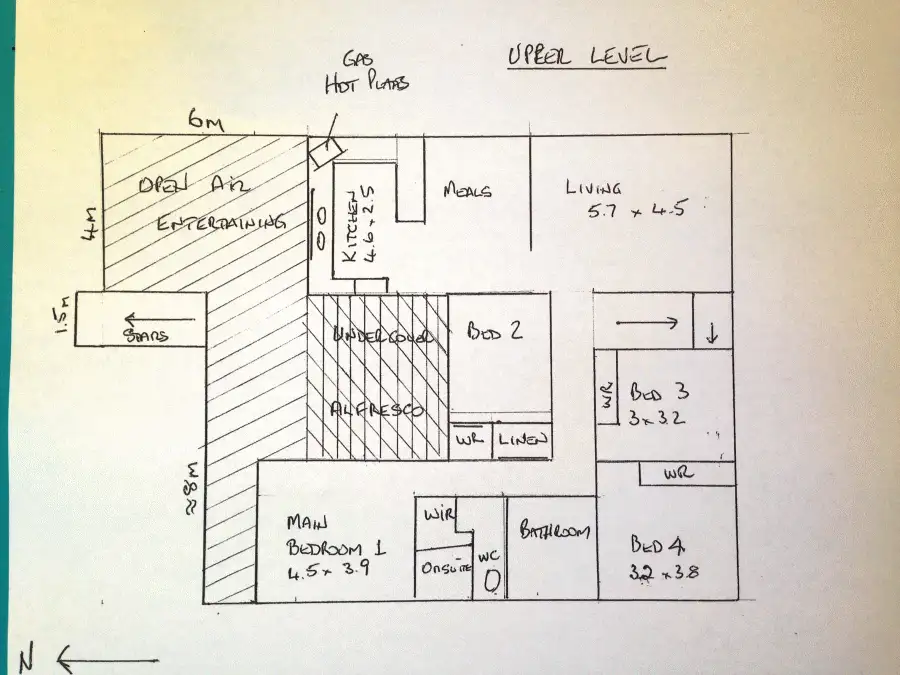 UPPER LEVEL
GAS
HOT PLATES
6M
OPEN AIR
ENTERTAINING
4M
KITCHEN
4.6 x 2.5
MEALS
LIVING
5.7 x 4.5
1.5m
STAIRS
UNDERCOVER
ALFRESCO
BED 2
WR
LINEN
WR
BED 3
3 x 3.2
WR
≈8M
MAIN
BEDROOM 1
4.5 x 3.9
WIR
ONSUITE
WC
BATHROOM
BED 4
3.2 x 3.8
N